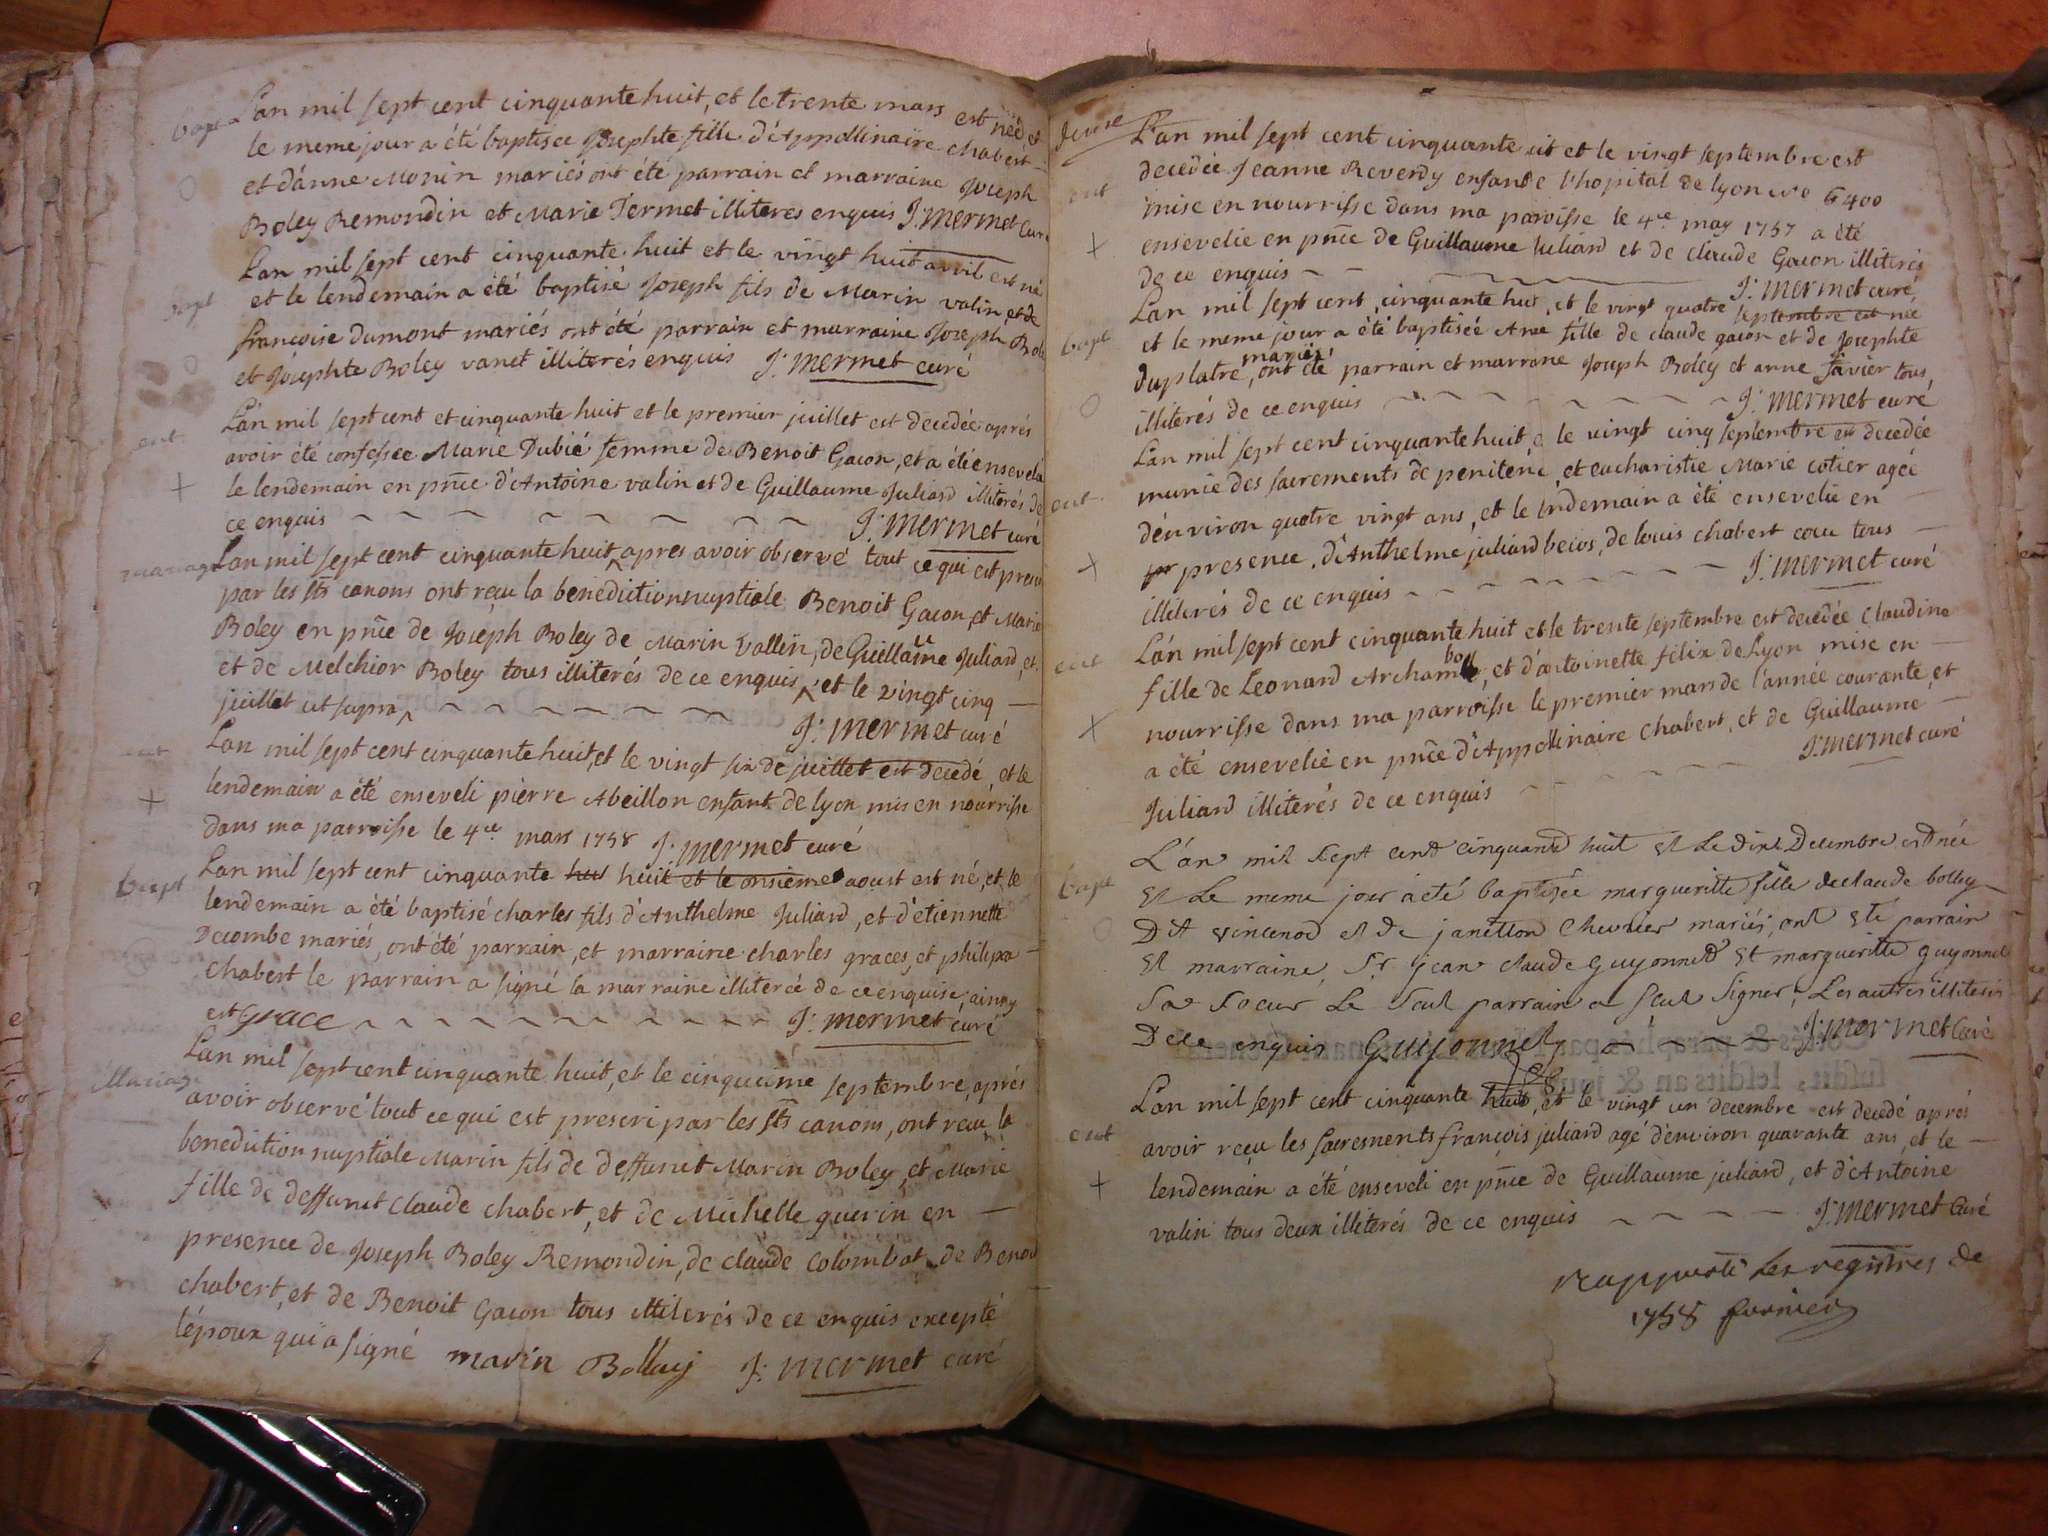 bapt
L'an mil sept cent cinquante huit, et le trente mars est née, et
le meme jour a été baptisée Josephte fille d'Appollinaire chabert
et d'anne Monin mariés ont été parrain et marraine Joseph
Boley Remondin et Marie Termet illiterés enquis J: mermet curé
bapt
L'an mil sept cent cinquante huit et le vingt huit avril est né
et le lendemain a été baptisé Joseph fils de Marin valin et de
françoise dumont mariés ont été parrain et marraine Joseph Boley
et Josephte Boley vanet illiterés enquis J: mermet curé
ent
L'an mil sept cent et cinquante huit et le premier juillet est decedée aprés
avoir été confessée Marie Dubié femme de Benoit Gacon, et a été ensevelie
le lendemain en pnce d'Antoine valin et de Guillaume Juliard illiterés de
ce enquis J: mermet curé
mariage
L'an mil sept cent cinquante huit ^ apres avoir observé tout ce qui est prescri
par les sts canons ont reçu la benediction nuptiale Benoit Gacon, et Marie
Boley en pnce de Joseph Boley de Marin Vallin, de Guillaume Juliard, et
et de Melchior Boley tous illiterés de ce enquis ^ et le vingt cinq
juillet ut supra ^ J: mermet curé
ent
L'an mil sept cent cinquante huit, et le vingt six de juillet est decedé, et le
lendemain a été enseveli pierre Abeillon enfant de lyon mis en nourrisse
dans ma parroisse le 4e mars 1758 J: mermet curé
bapt
L'an mil sept cent cinquante huit et le onsieme aoust est né, et le
lendemain a été baptisé charles fils d'Anthelme Juliard, et d'etiennette
Decombe mariés, ont été parrain, et marraine charles graces, et philipa
chabert le parrain a signé la marraine illiterée de ce enquise, ainsy
est Grace J: mermet curé
Mariage
L'an mil sept cent cinquante huit, et le cinquieme septembre, aprés
avoir observé tout ce qui est prescri par les sts canons, ont reçu la
benediction nuptiale Marin fils de deffunct Marin Boley, et Marie
fille de deffunct Claude chabert, et de Michelle guerin en
presence de Joseph Boley Remondin, de claude Colombat de Benoit
chabert, et de Benoit Gacon tous illiterés de ce enquis excepté
l'époux qui a signé marin Bolley J: mermet curé
L'an mil sept cent cinquante uit et le vingt septembre est
decedée Jeanne Reverdy enfant de l'hopital de lyon No 6400
ent
mise en nourrisse dans ma paroisse le 4e may 1757 a été
ensevelie en pnce de Guillaume Juliard et de claude Gacon illiterés
de ce enquis J: mermet curé
bapt
L'an mil sept cent, cinquante huit, et le vingt quatre septembre est née
et le meme jour a été baptisée Anne fille de claude gacon et de Josephte
Duplatre, mariés ont été parrain et marraine Joseph Boley et anne favier tous
illiterés de ce enquis J: mermet curé
ent
L'an mil sept cent cinquante huit, le vingt cinq septembre est decedée
munie des sacrements de penitence, et eucharistie Marie cotier agée
d'environ quatre vingt ans, et le lendemain a été ensevelie en
presence, d'Anthelme juliard beios, de louis chabert cocu tous
illiterés de ce enquis J: mermet curé
ent
L'an mil sept cent cinquante huit et le trente septembre est decedée Claudine
fille de Leonard Archambou, et d'antoinette felix de Lyon mise en
nourrisse dans ma parroisse le premier mars de l'année courante, et
a été ensevelie en pnce d'Appollinaire Chabert, et de Guillaume
Juliard illiterés de ce enquis J: mermet curé
bapt
L'an mil sept cent cinquante huit et le dixe Decembre est née
et le meme jour a été baptisée margueritte fille de claude bolley
Dit vincenod et de janetton Chevrier mariés, ont été parrain
et marraine, Sr jean claude guyonnet et margueritte guyonnet
sa soeur Le seul parrain a seul signer, Les autres illiterés
De ce enquis Guyonnet J: mermet Curé
L'an mil sept cent cinquante huit, et le vingt un decembre est decedé aprés
ent
avoir reçu les sacrements françois juliard agé d'environ quarante ans, et le
lendemain a été enseveli en pnce de Guillaume juliard, et d'Antoine
valin tous deux illiterés de ce enquis J: mermet Curé
rapporté les registres de
1758 fornier